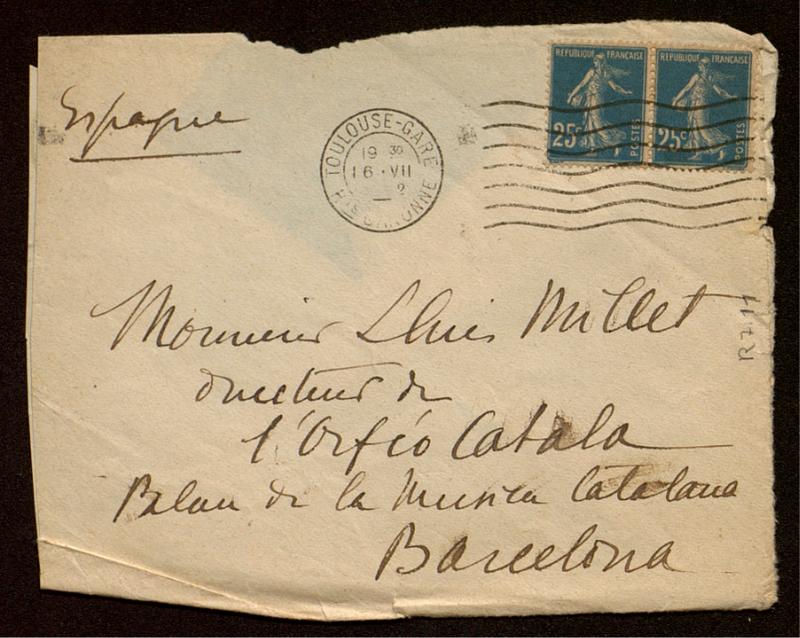 Espagne
TOULOUSE-GARE
19 30
16 • VII
Hte GARONNE
REPUBLIQUE FRANÇAISE
25c
POSTES
REPUBLIQUE FRANÇAISE
25c
POSTES
Monsieur Lluis Millet
directeur de
l'Orfeó Catala
Palau de la Musica Catalana
Barcelona